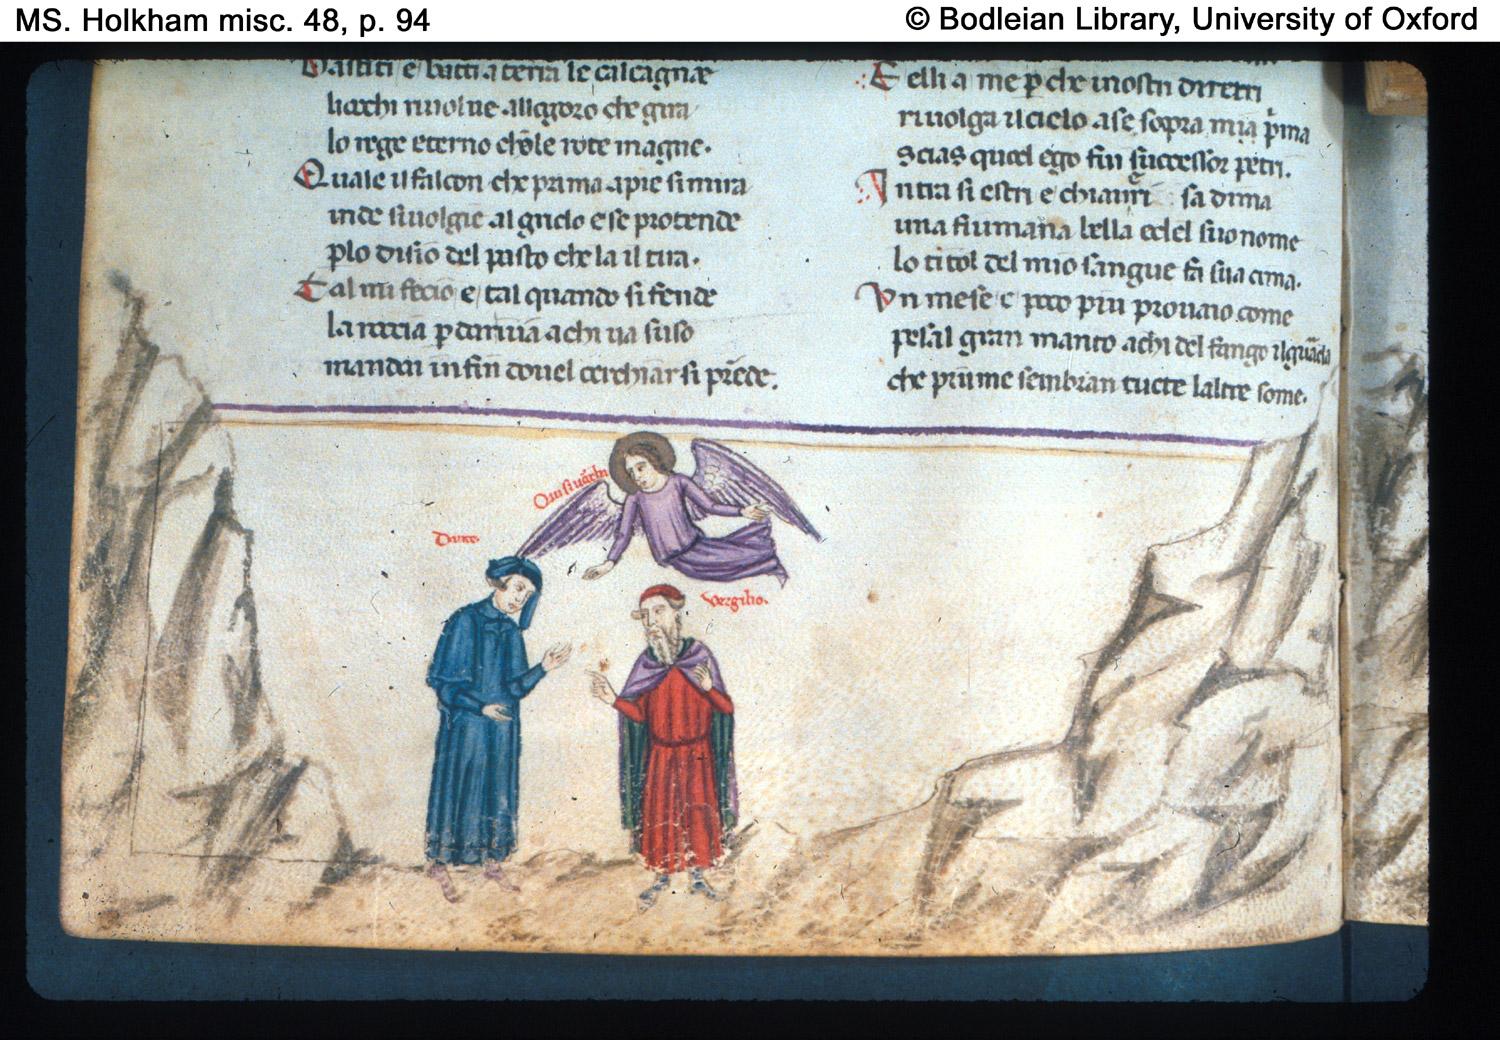 MS. Holkham misc. 48, p. 94
© Bodleian Library, University of Oxford
Bastiti e batti a terra le calcagnæ
liocchi rivolue allogoro che gira
lo rege eterno chōle rote magne.
Quale il falcon che prima apiе si mira
inde si volgie al grido e se protende
p̱lo disio del pasto che la il tira.
Tal mi fecio e tal quando si fende
la roccia p̱ dar uia achi ua suso
mandai infin douel cerchiar si prēde.
E elli a me p̱ che inostri diretri
riuolga il cielo a se sopra mia pͥma
scias quod ego fui successor petri.
Intra siestri e chiaueri sa dima
una fiumana bella e del suo nome
lo titol del mio sangue fa sua cima.
Un mese e poco piu prouaio come
pesa l gran manto achi del fango il guarda
che piume sembran tucte laltre some.
Dante.
Vergilio.